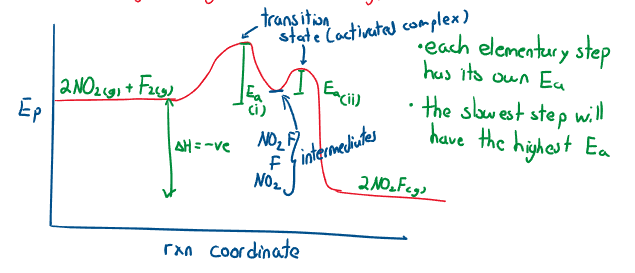 transition
state (activated complex)
2NO₂(g) + F₂(g)
Ep
Ea
(i)
Ea
(ii)
ΔH = -ve
NO₂F
F
NO₂
intermediates
2NO₂F(g)
rxn coordinate
• each elementary step
has its own Ea
• the slowest step will
have the highest Ea